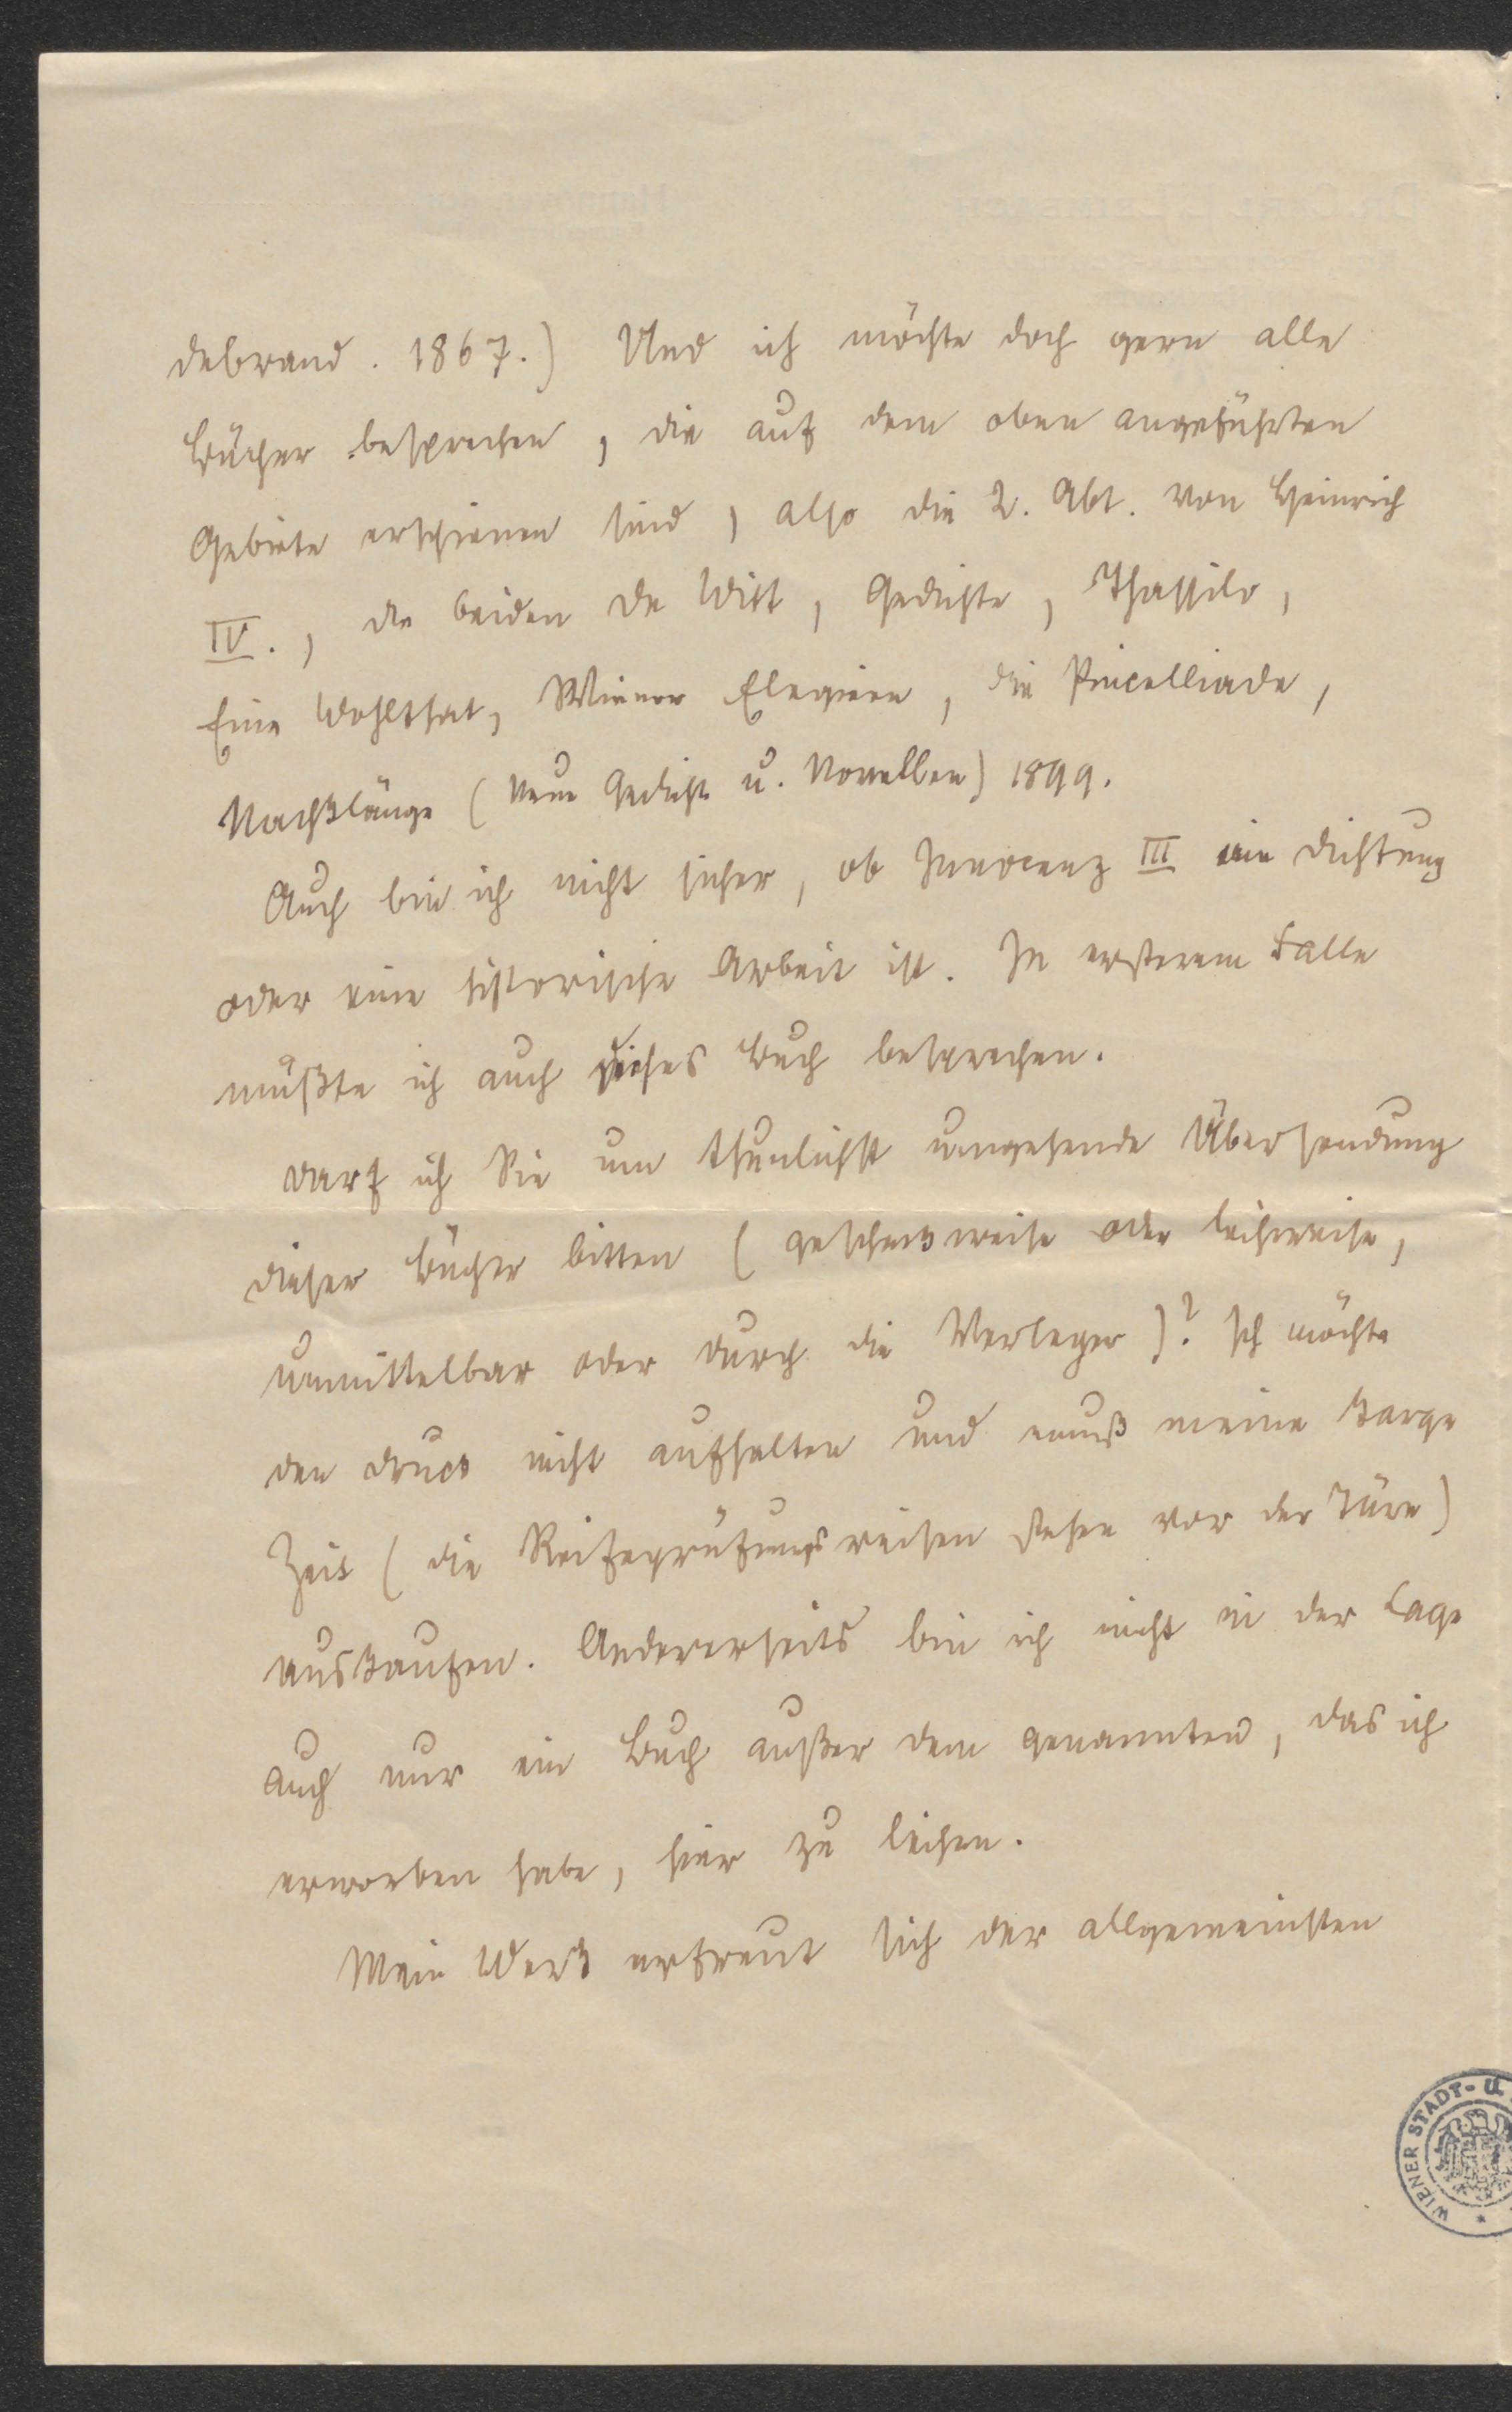 debrand. 1867.) Und ich möchte doch gern alle
Bücher besprechen, die auf dem oben angeführten
Gebiete erschienen sind, also die 2. Abt. von Heinrich
IV., die beiden de Witt, Gedichte, Thassilo,
Eine Wohlthat, Wiener Elegieen, die Pincelliade,
Nachklänge (Neue Gedichte u. Novellen) 1899.
Auch bin ich nicht sicher, ob Innocenz III eine Dichtung
oder eine historische Arbeit ist. In ersterem Falle
müßte ich auch dieses Buch besprechen.
Darf ich Sie um thunlichst umgehende Übersendung
dieser Bücher bitten (geschenkweise oder leihweise,
unmittelbar oder durch die Verleger)? Ich möchte
den Druck nicht aufhalten und muß meine karge
Zeit (die Reifeprüfungsreisen stehen vor der Türe)
auskaufen. Andererseits bin ich nicht in der Lage
auch nur ein Buch außer dem genannten, das ich
erworben habe, hier zu leihen.
Mein Werk erfreut sich der allgemeinsten
WIENER STADT- U.